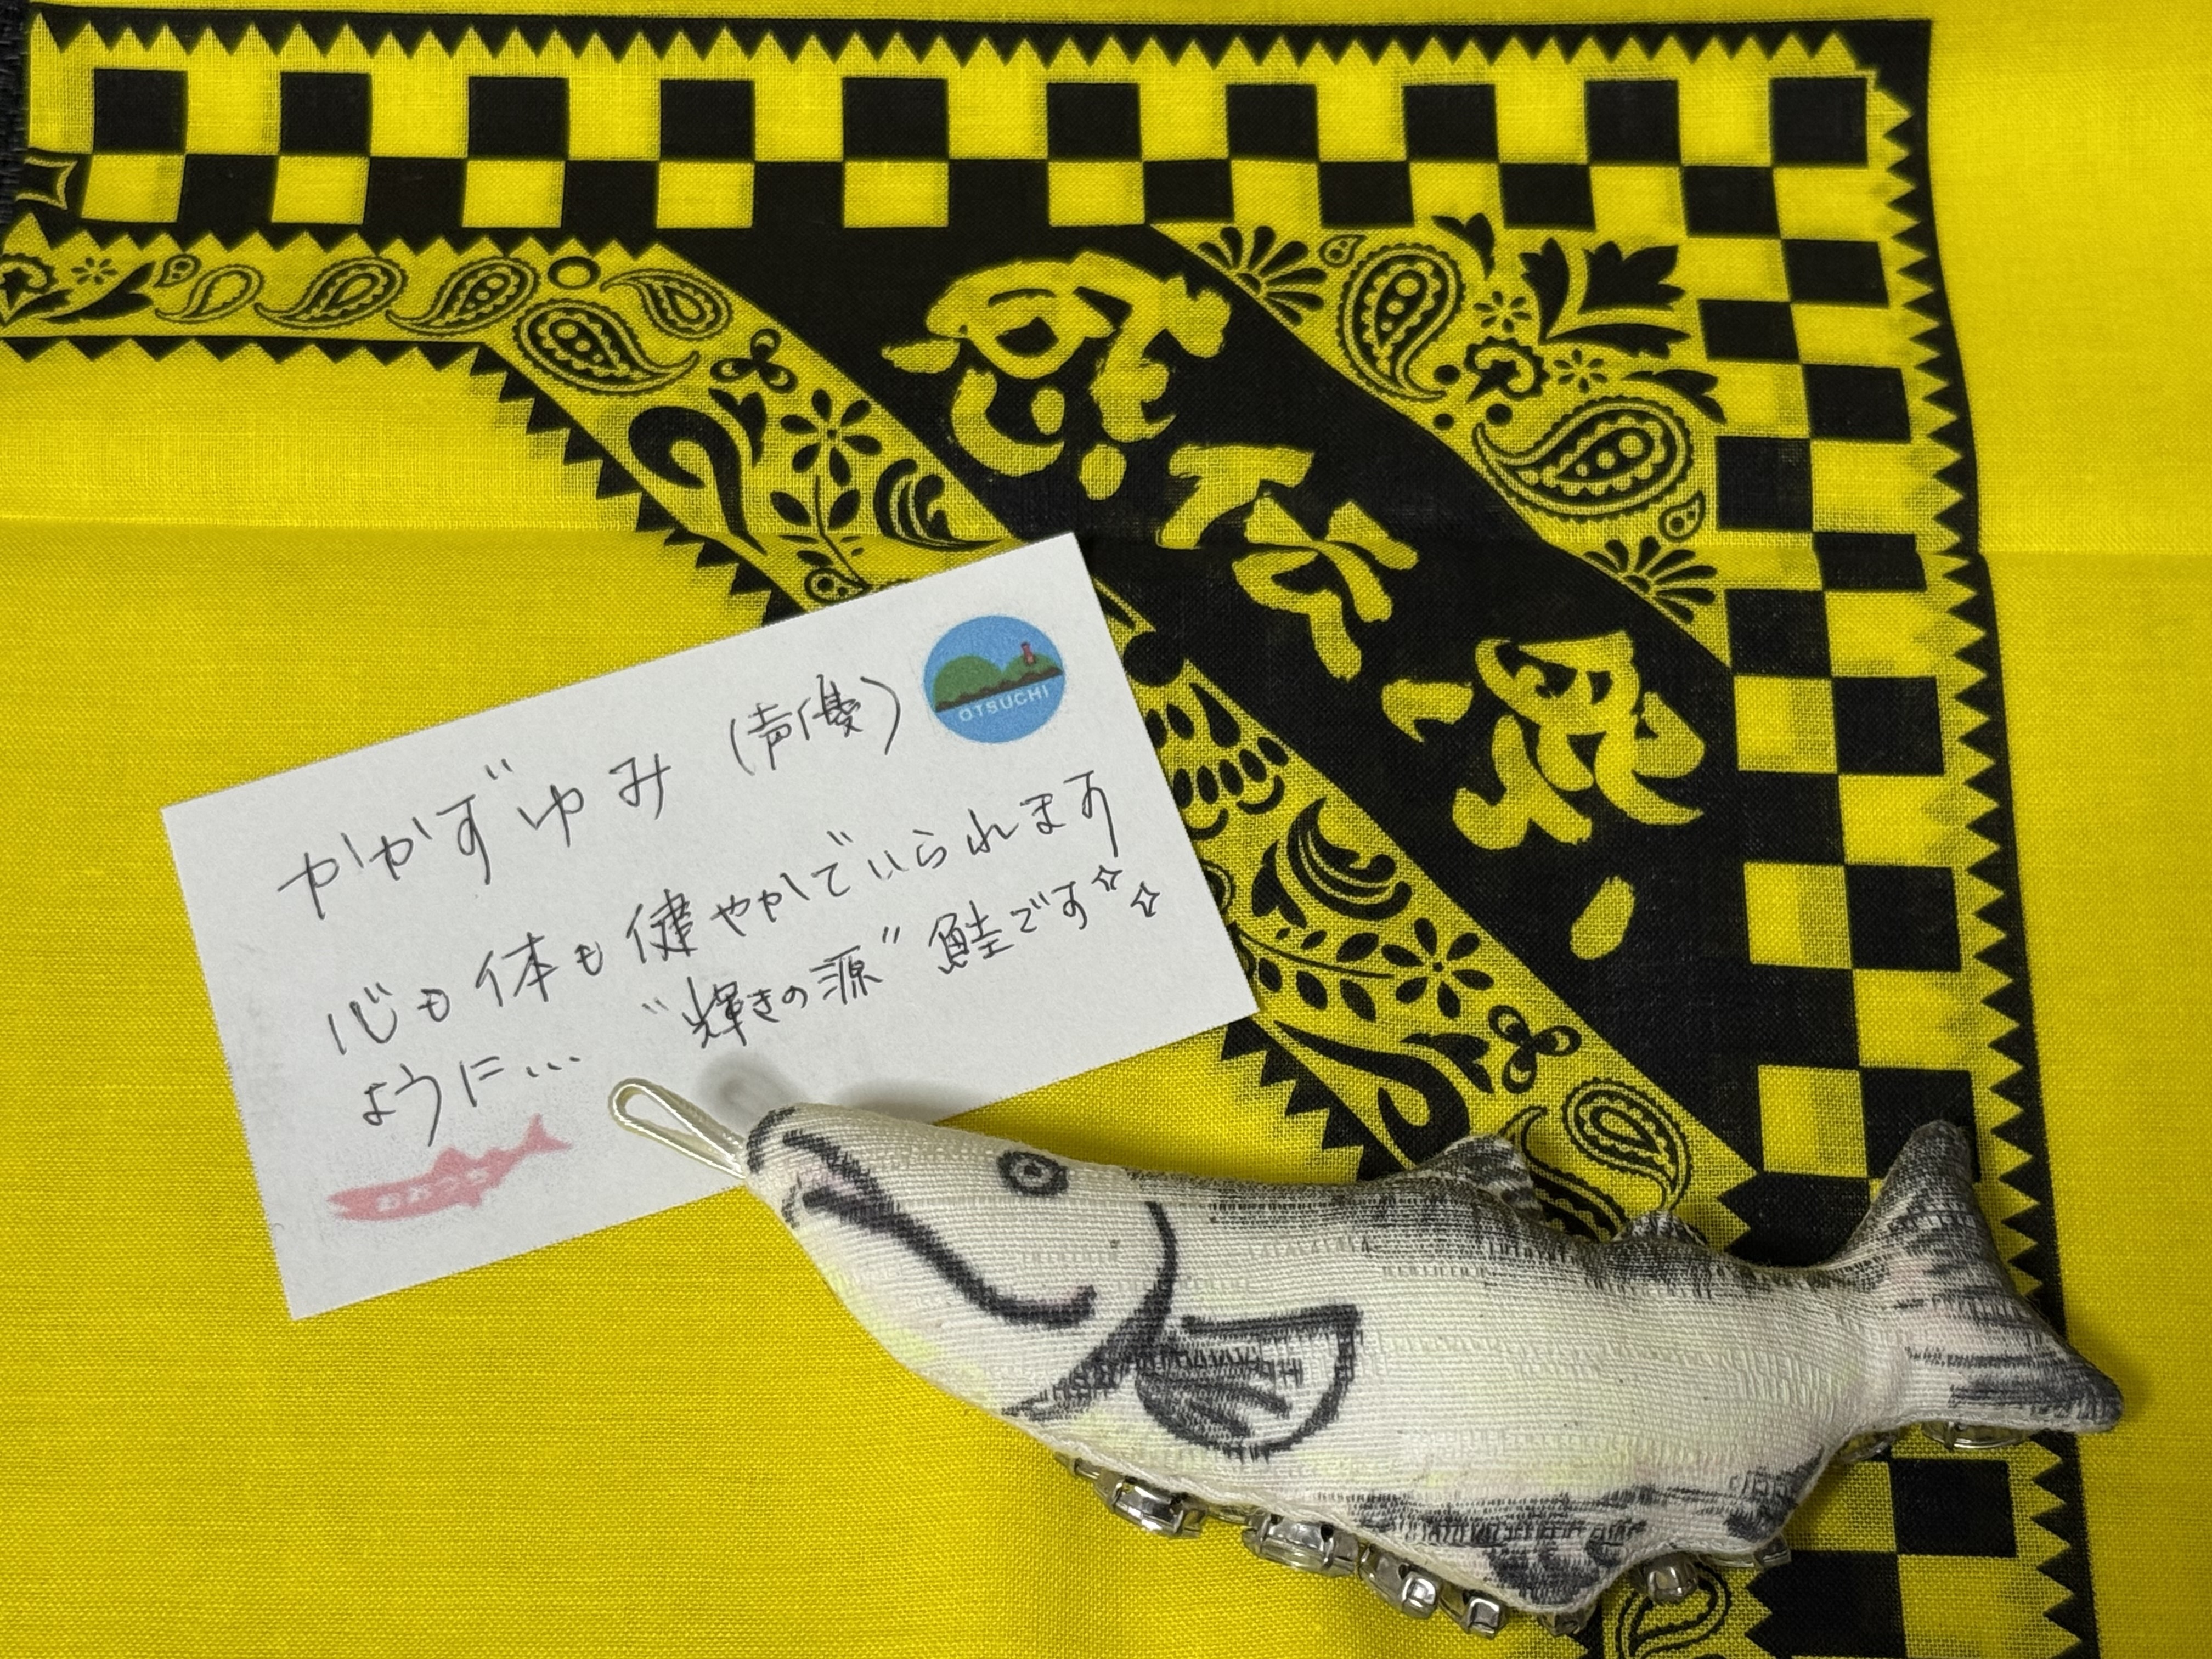 OTSUCHI
かかずゆみ (声優)
心も体も健やかでいられます
ように... "輝きの源" 鮭です☆☆
おおつち